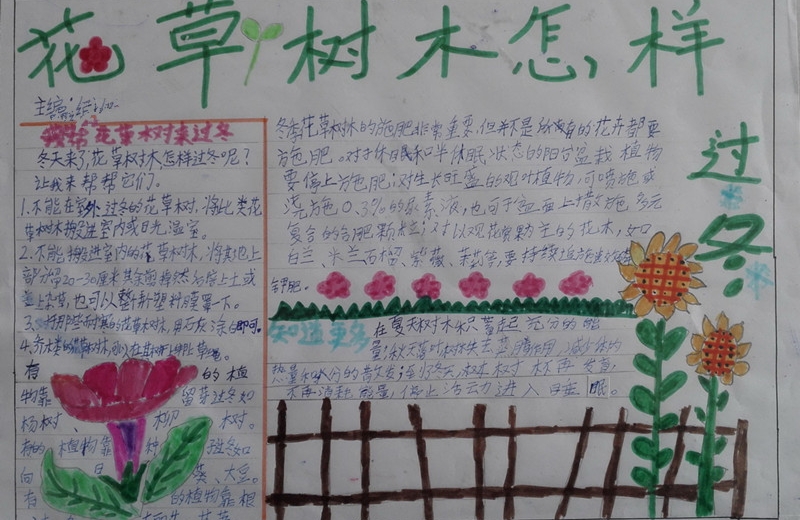 花草树木怎样
过冬
主编:
我帮花草树木来过冬
冬天来了,花草树木怎样过冬呢?
让我来帮帮它们。
1.不能在室外过冬的花草树木,将此类花
草树木搬进室内或日光温室。
2.不能搬进室内的花草树木,将其地上
部分留20-30厘米其余剪掉然后培上土或
也可以整材塑料膜罩一下。
3.将那些耐寒的花草树木,用石灰涂白即可。
有的植
物靠留芽过冬如
杨树、柳树。
有的植物靠种
向日葵、大豆。
有的植物靠根
冬季花草树木的施肥非常重要,但并不是所有的花卉都要
施肥。对于休眠和半休眠状态的阳台盆栽植物
要停止施肥;对生长旺盛的观叶植物,可喷施或
浇施0.3%的尿素液,也可于盆面上撒施多元
复合的合肥颗粒;对以观花果为主的花木,如
白兰、米兰石榴、紫薇、茉莉等,要持续追施
钾肥。
知道更多
在夏天树木积蓄起充分的能
量,秋天落叶树林失去蒸腾作用,减少体内
热量和水分的散发;到冬天,树木树林不再发育,
不再消耗能量,停止活动力进入日 眠。